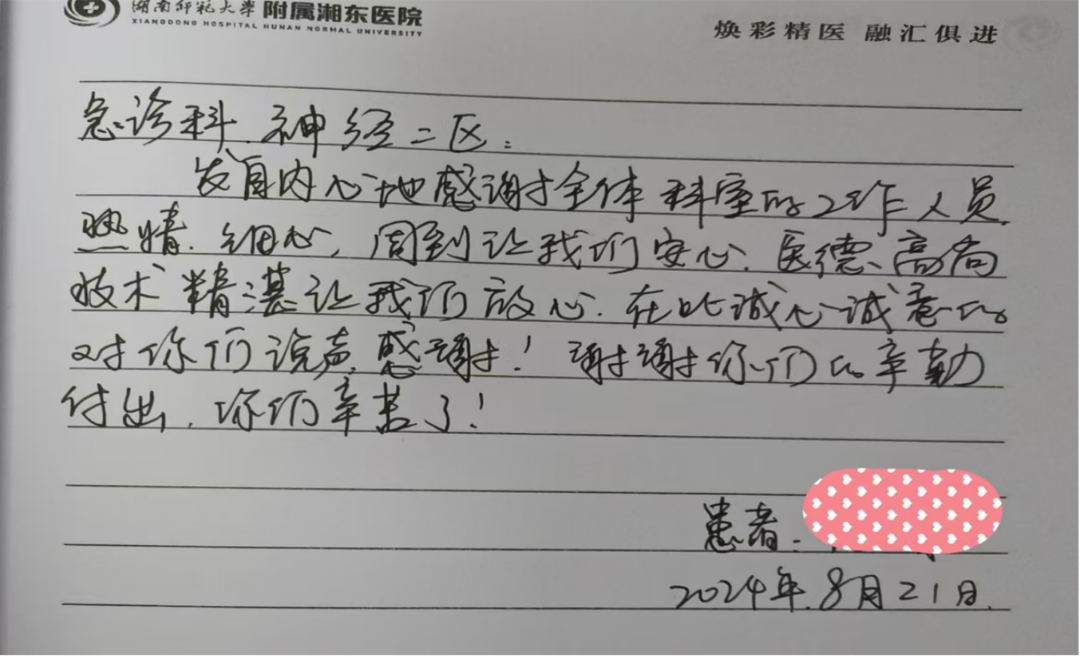 湖南师范大学 附属湘东医院
XIANGDONG HOSPITAL HUNAN NORMAL UNIVERSITY
焕彩精医 融汇俱进
急诊科.神经二区:
发自内心地感谢全体科室的工作人员.
热情.细心,周到让我们安心.医德高尚
技术精湛让我们放心.在此诚心诚意的
对你们说声,感谢!谢谢你们的辛勤
付出,你们辛苦了!
患者:
2024年.8月21日.